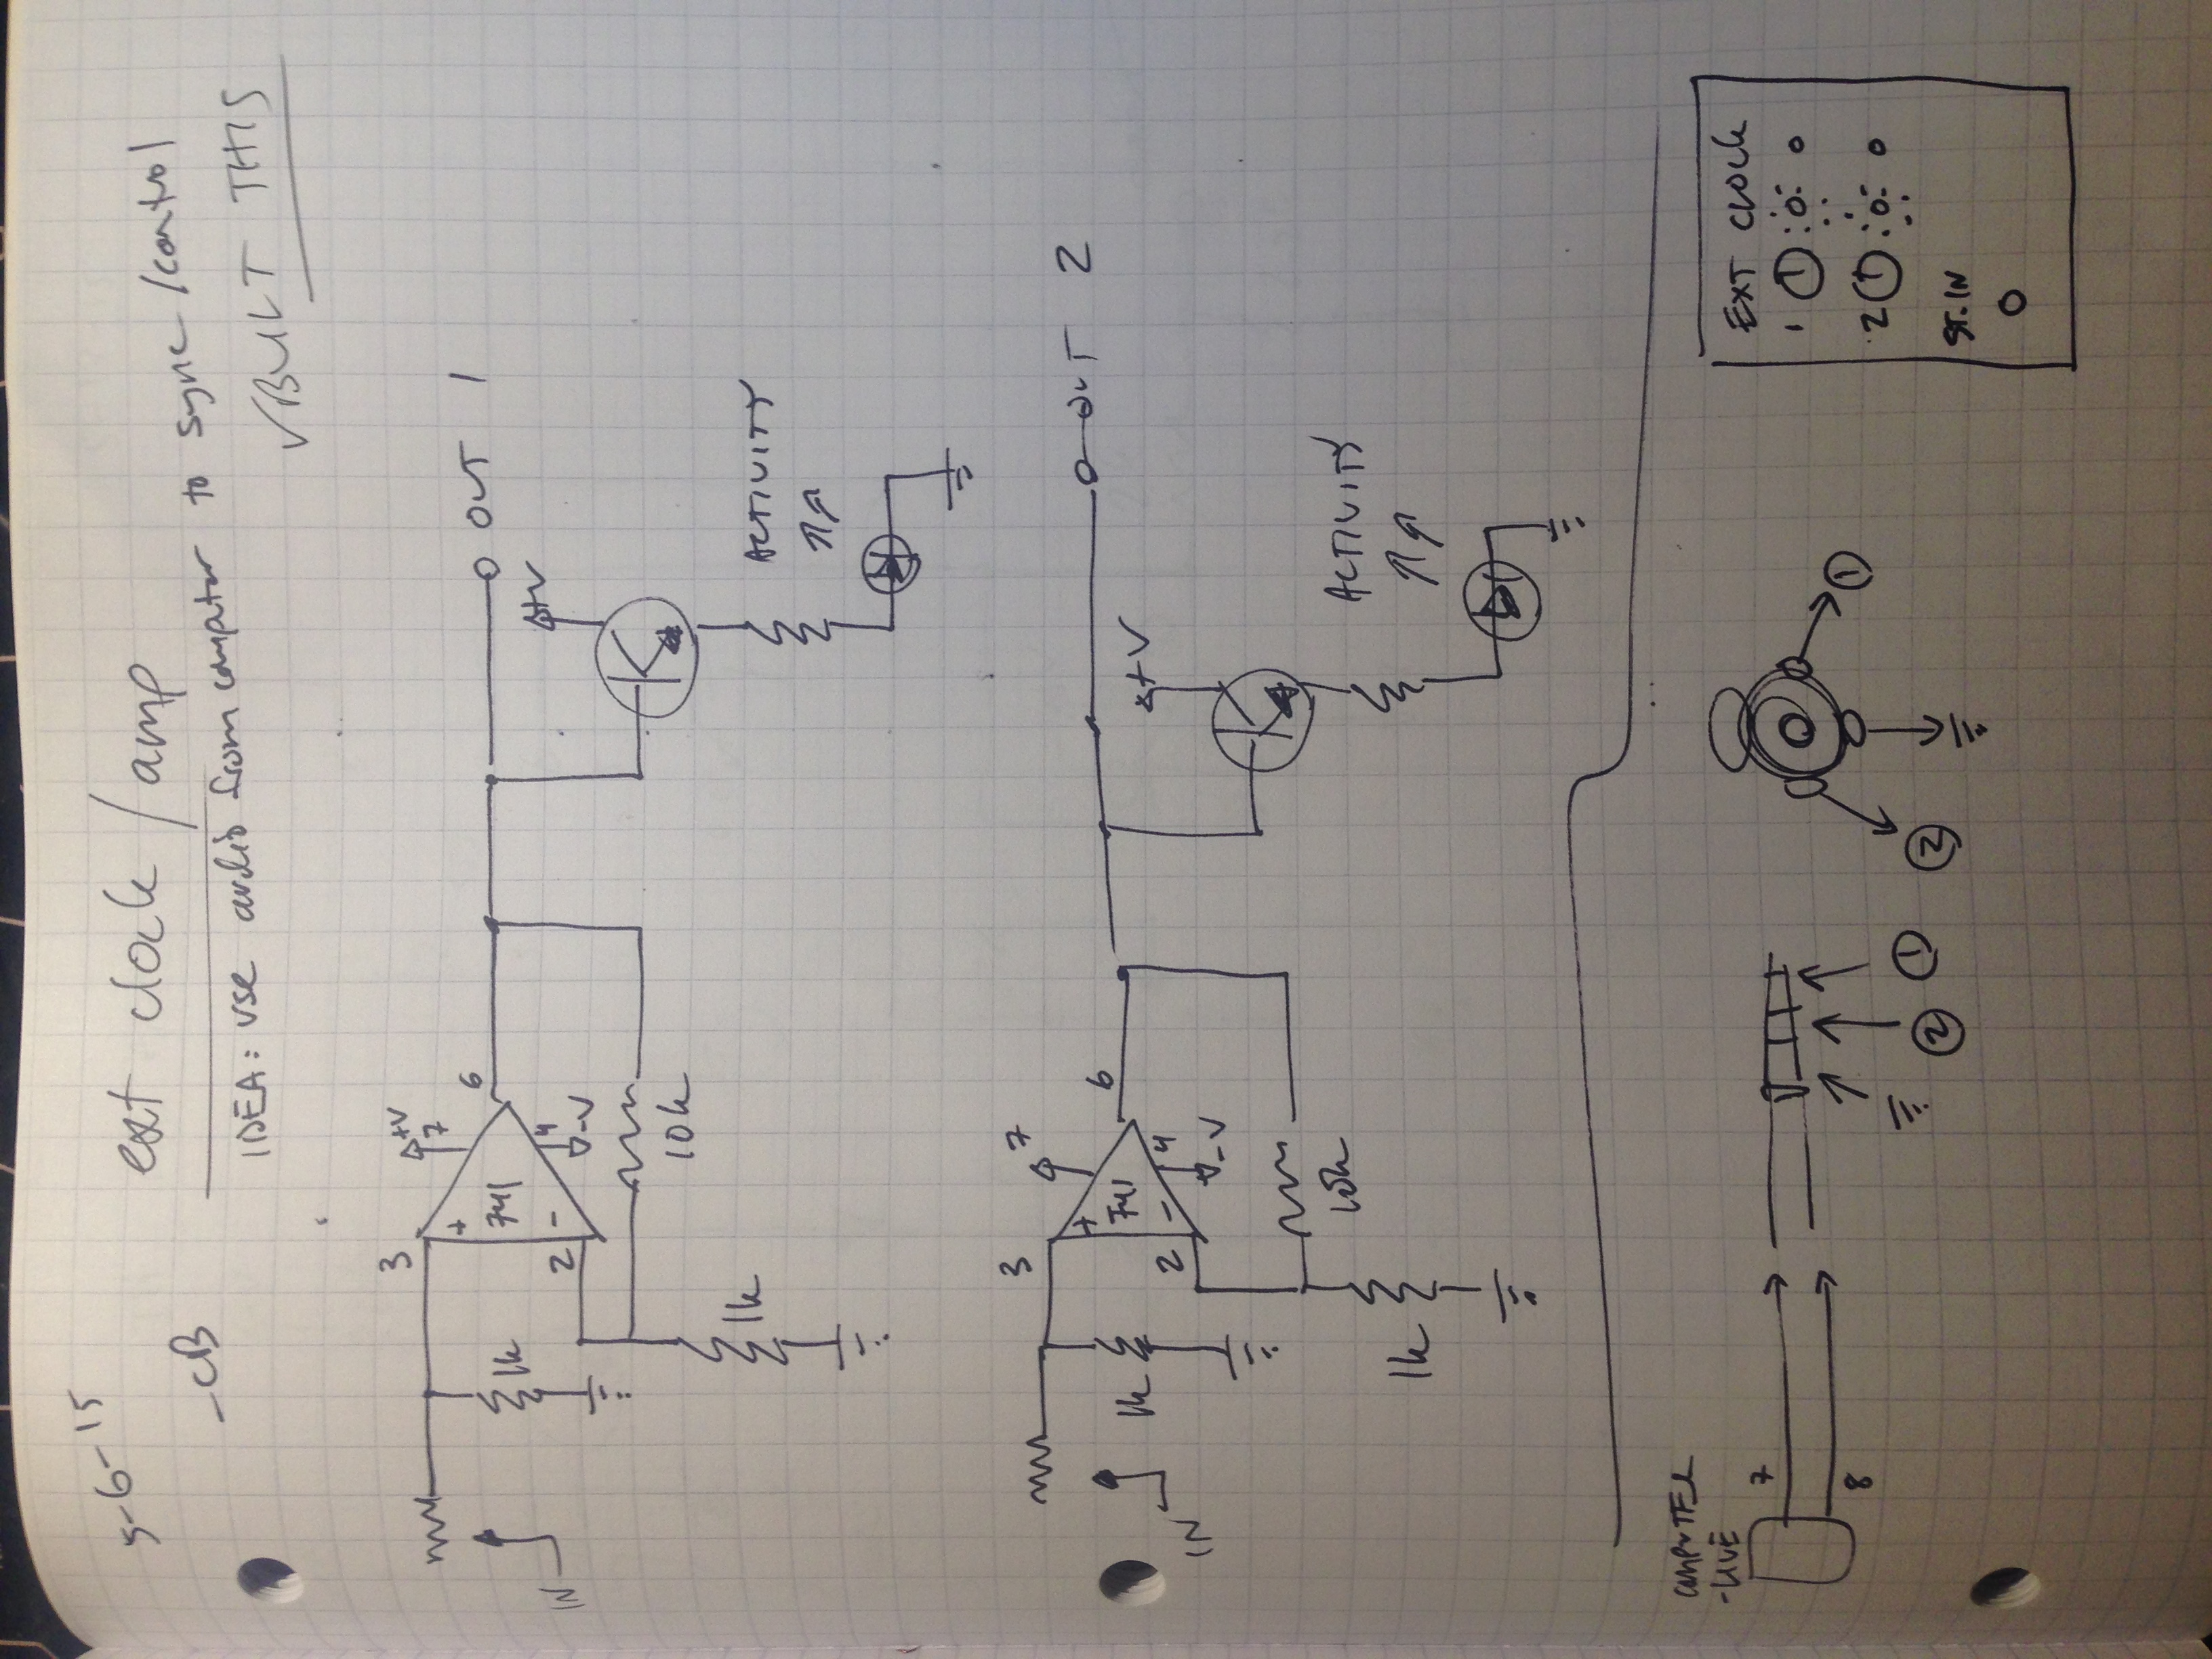 5-6-15
-CB
ext clock / amp
IDEA: use audio from computer to sync/control
✓BUILT THIS
3
+V
7
+
741
6
OUT 1
1k
IN
2
-
4
-V
+V
10k
1k
ACTIVITY
3
7
+
741
6
OUT 2
1k
IN
2
-
4
-V
+V
10k
1k
ACTIVITY
COMPUTER
-LIVE
7
8
2
1
2
1
EXT CLOCK
1
2
ST. IN